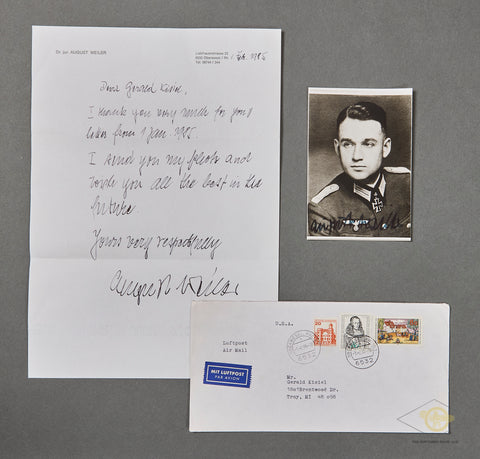 Dr. jur. AUGUST WEILER
Tel. 06744 / 344
Dear Gerald Kisiel,
I thank you very much for your
letter from 1 Jan. 1985.
I send you my photo and
wish you all the best in the
future.
Yours very respectfully
August Weiler
August Weiler
U.S.A.
Luftpost
Air Mail
20
6532
6532
MIT LUFTPOST
PAR AVION
Mr.
Gerald Kisiel
Brentwood Dr.
Troy, MI 48 098